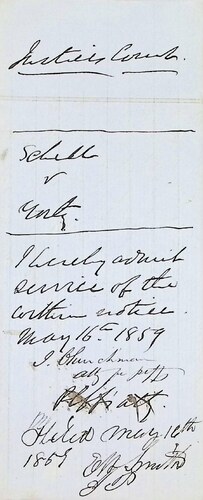 Justices Court.
Schell
v
Yorty.
I hereby admit
service of the
within notice.
May 16th 1859
J. Churchman
atty for pltff
Pltfs atty.
Filed May 16th
1859 Smith
J P